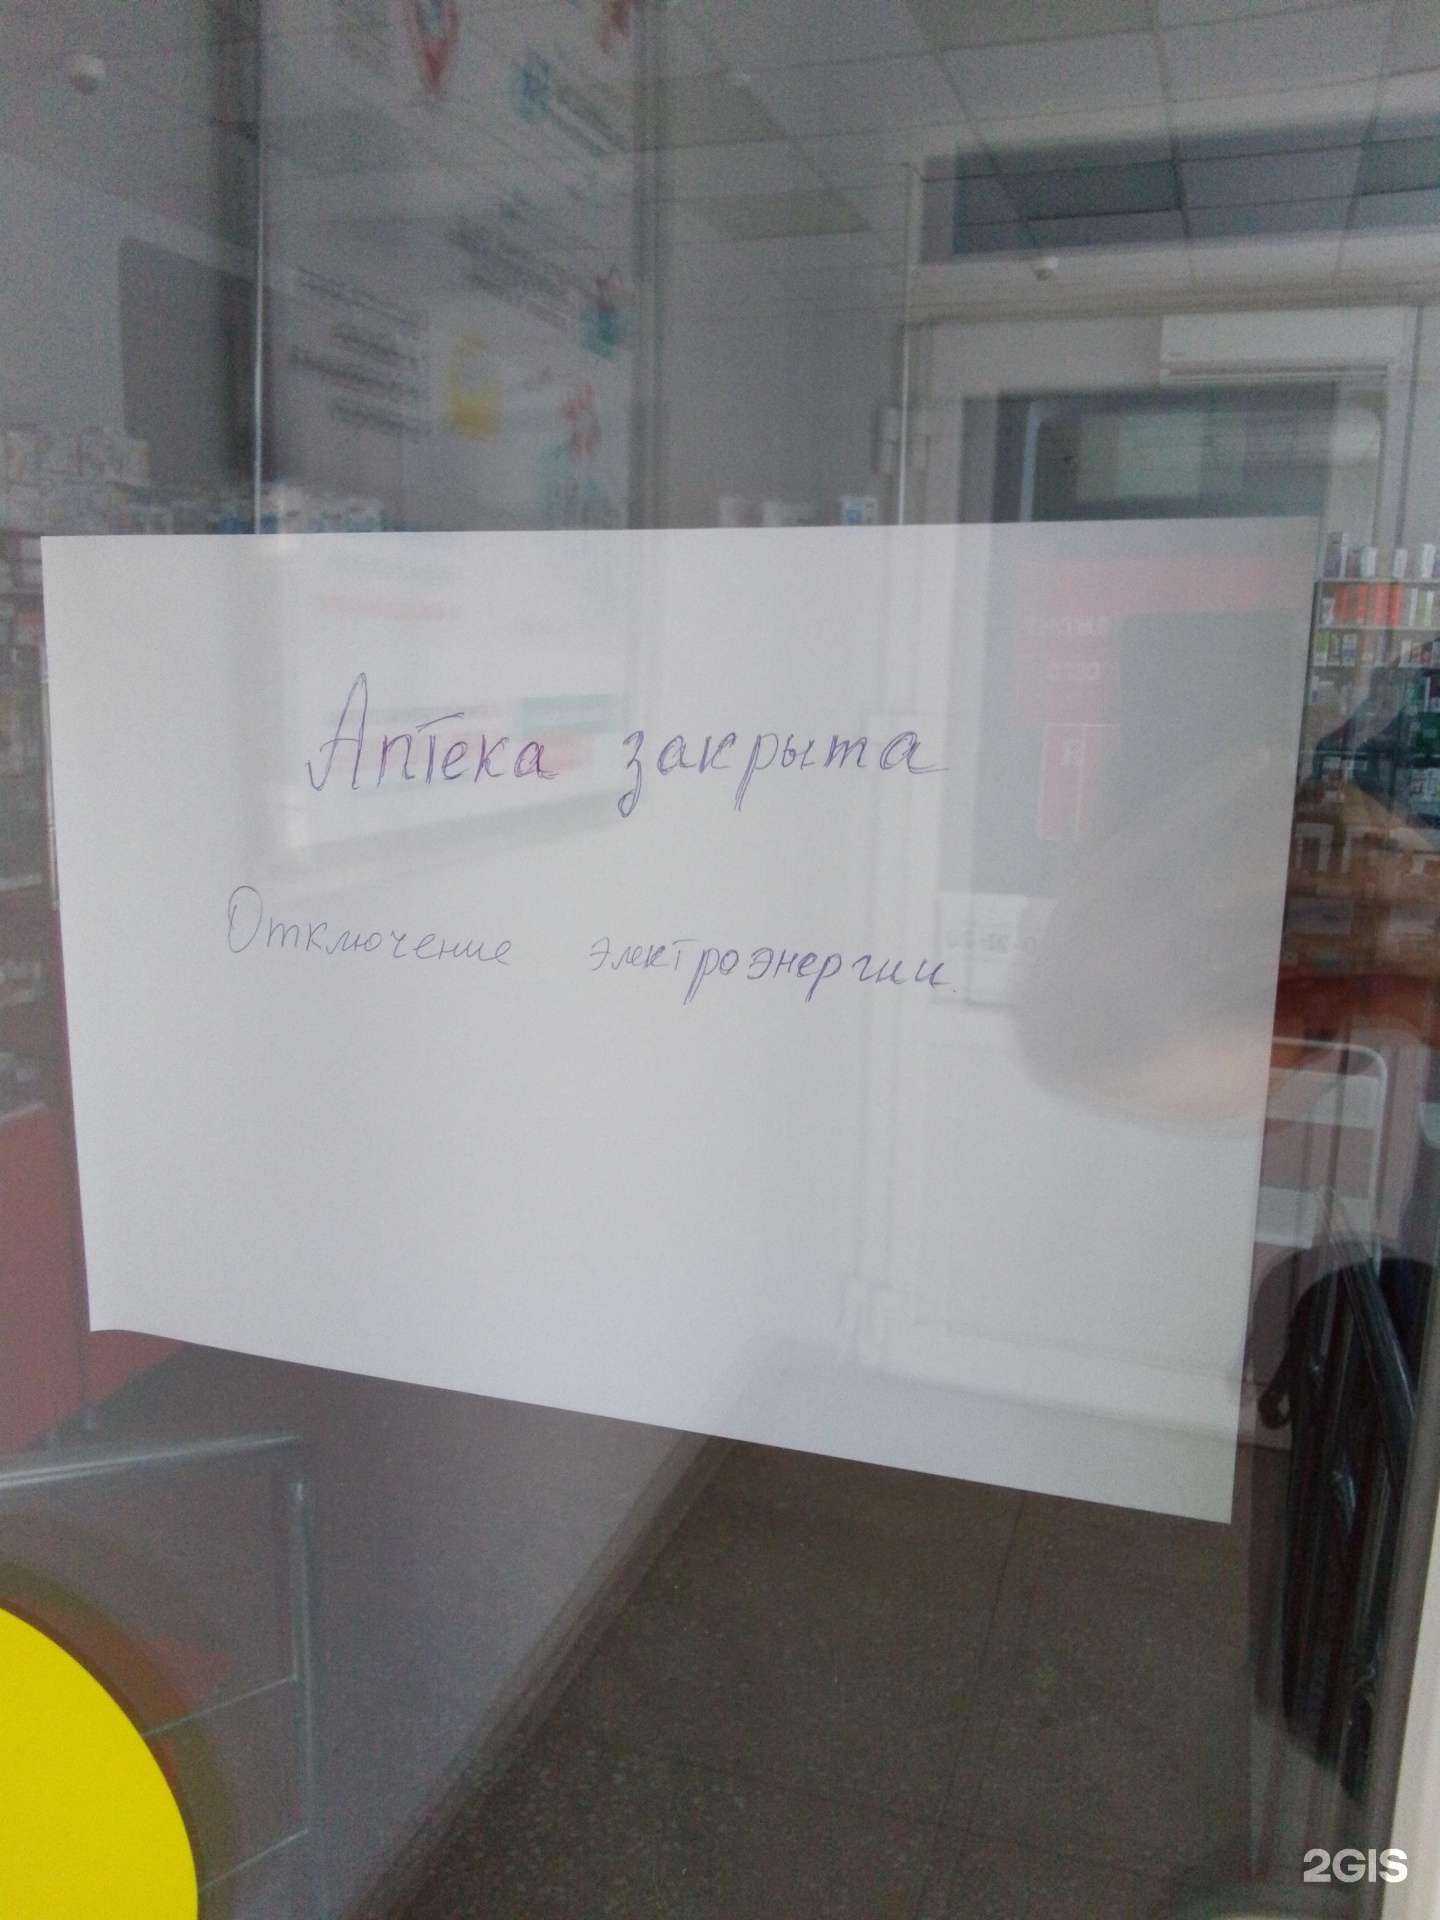 Аптека закрыта
Отключение электроэнергии.
2GIS